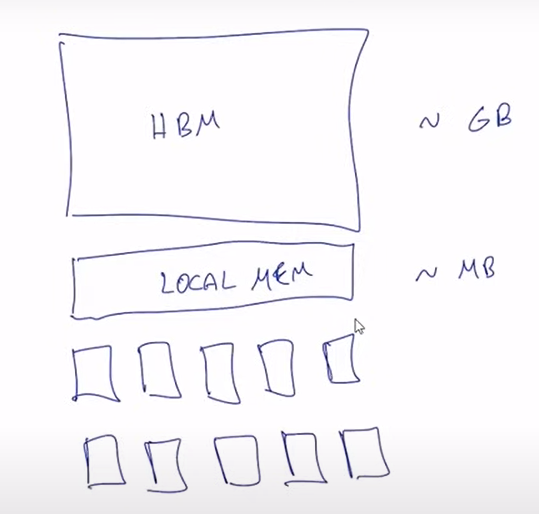 HBM ~ GB
LOCAL MEM ~ MB